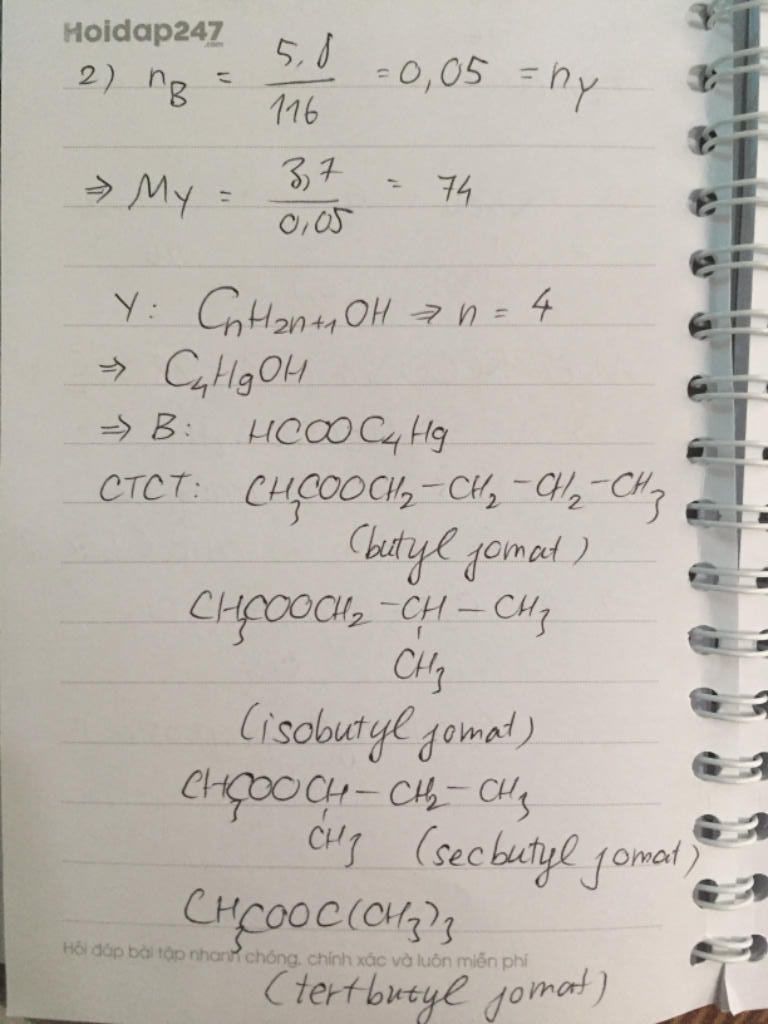 Hoidap247
.com
2) nB = 5,8/116 = 0,05 = nY
⇒ MY = 3,7/0,05 = 74
Y: CnH2n+1OH ⇒ n = 4
⇒ C4H9OH
⇒ B: HCOOC4H9
CTCT: CH3COOCH2-CH2-CH2-CH3
(butyl fomat)
CH3COOCH2-CH-CH3
CH3
(isobutyl fomat)
CH3COOCH-CH2-CH3
CH3 (secbutyl fomat)
CH3COOC(CH3)3
Hỏi đáp bài tập nhanh chóng, chính xác và luôn miễn phí
(tertbutyl fomat)